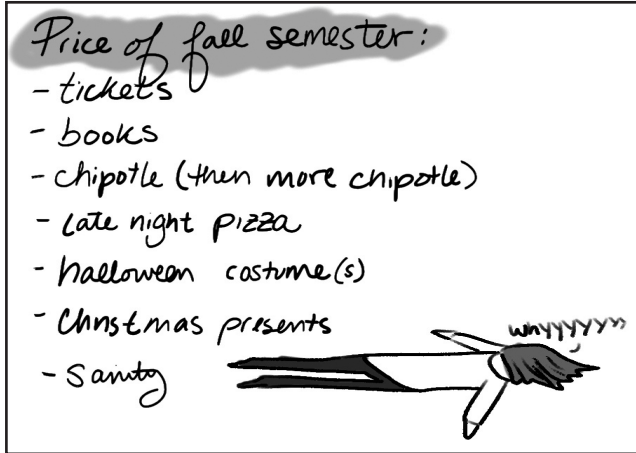 Price of fall semester:
- tickets
- books
- chipotle (then more chipotle)
- late night pizza
- halloween costume(s)
- Christmas presents
- sanity
whyyyyyyy